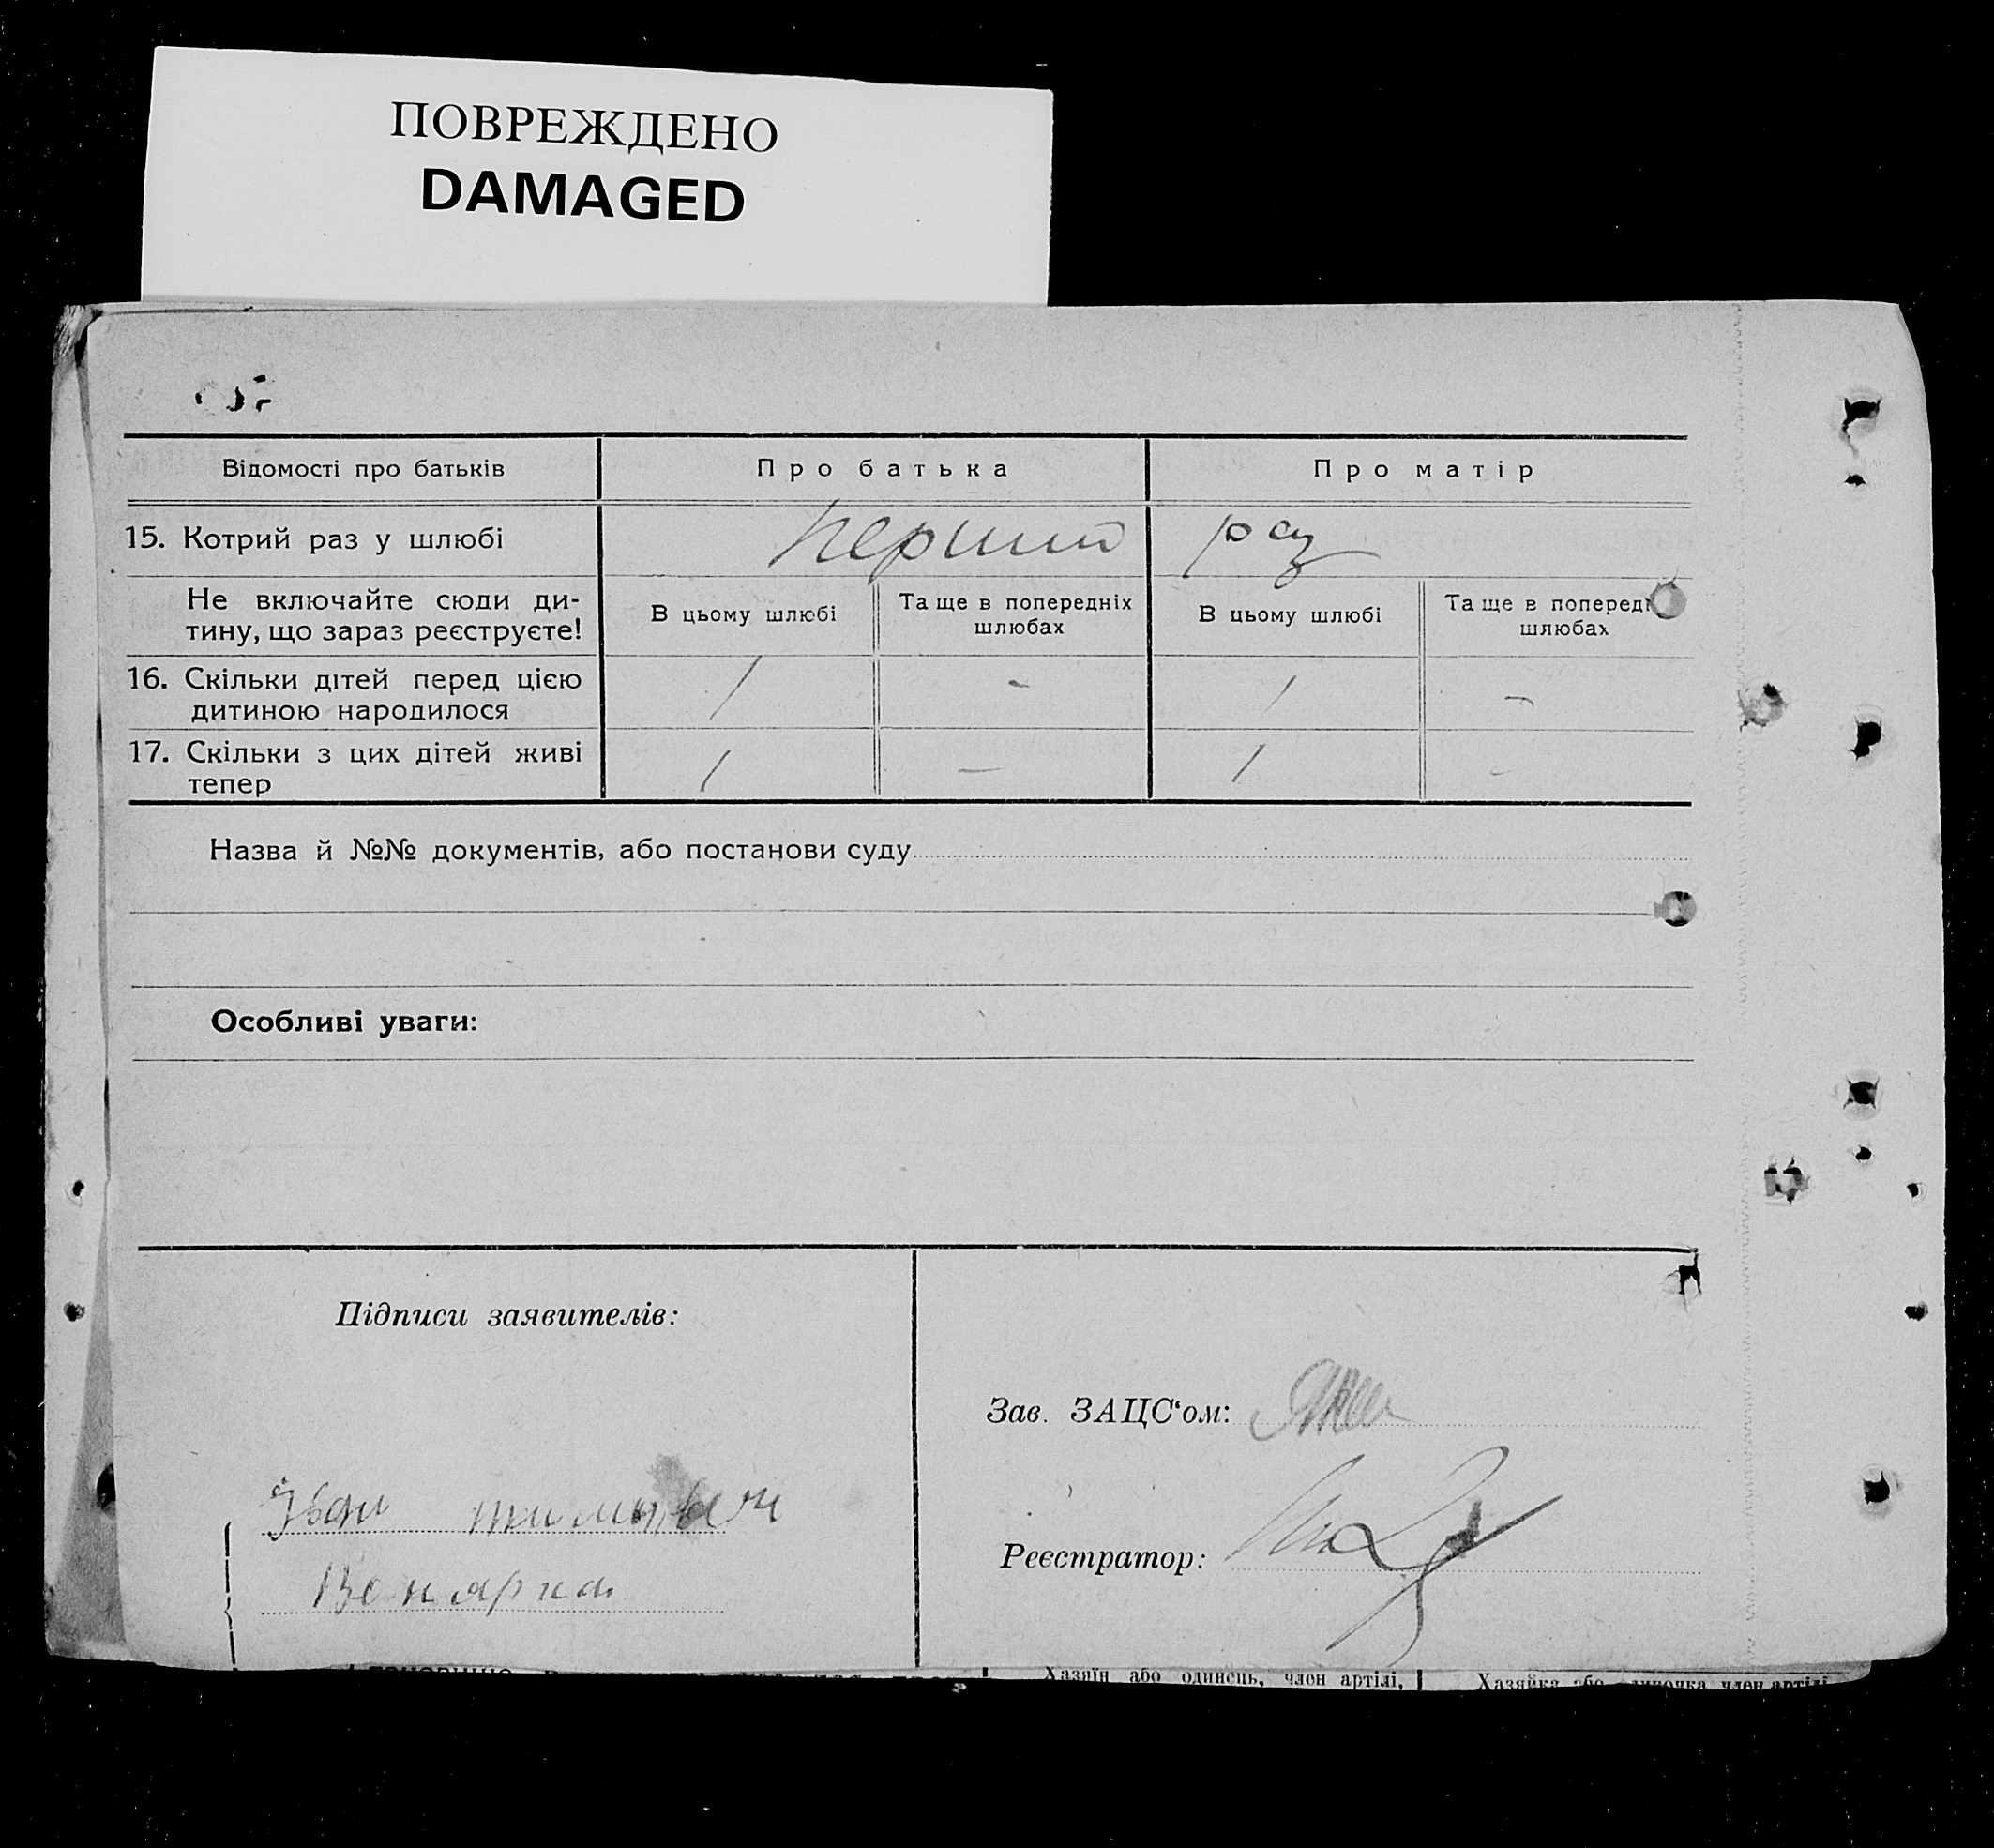 ПОВРЕЖДЕНО
DAMAGED
Відомості про батьків
Про батька
Про матір
15. Котрий раз у шлюбі
перший раз
Не включайте сюди ди-
тину, що зараз реєструєте!
В цьому шлюбі
Та ще в попередніх
шлюбах
В цьому шлюбі
Та ще в поперед
шлюбах
16. Скільки дітей перед цією
дитиною народилося
1 - 1 -
17. Скільки з цих дітей живі
тепер
1 - 1 -
Назва й №№ документів, або постанови суду
Особливі уваги:
Підписи заявителів:
Зав. ЗАЦС‘ом:
Іван
Реєстратор:
Хазяїн або одинець, член артілі,
Хазяйка або одиночка член артілі